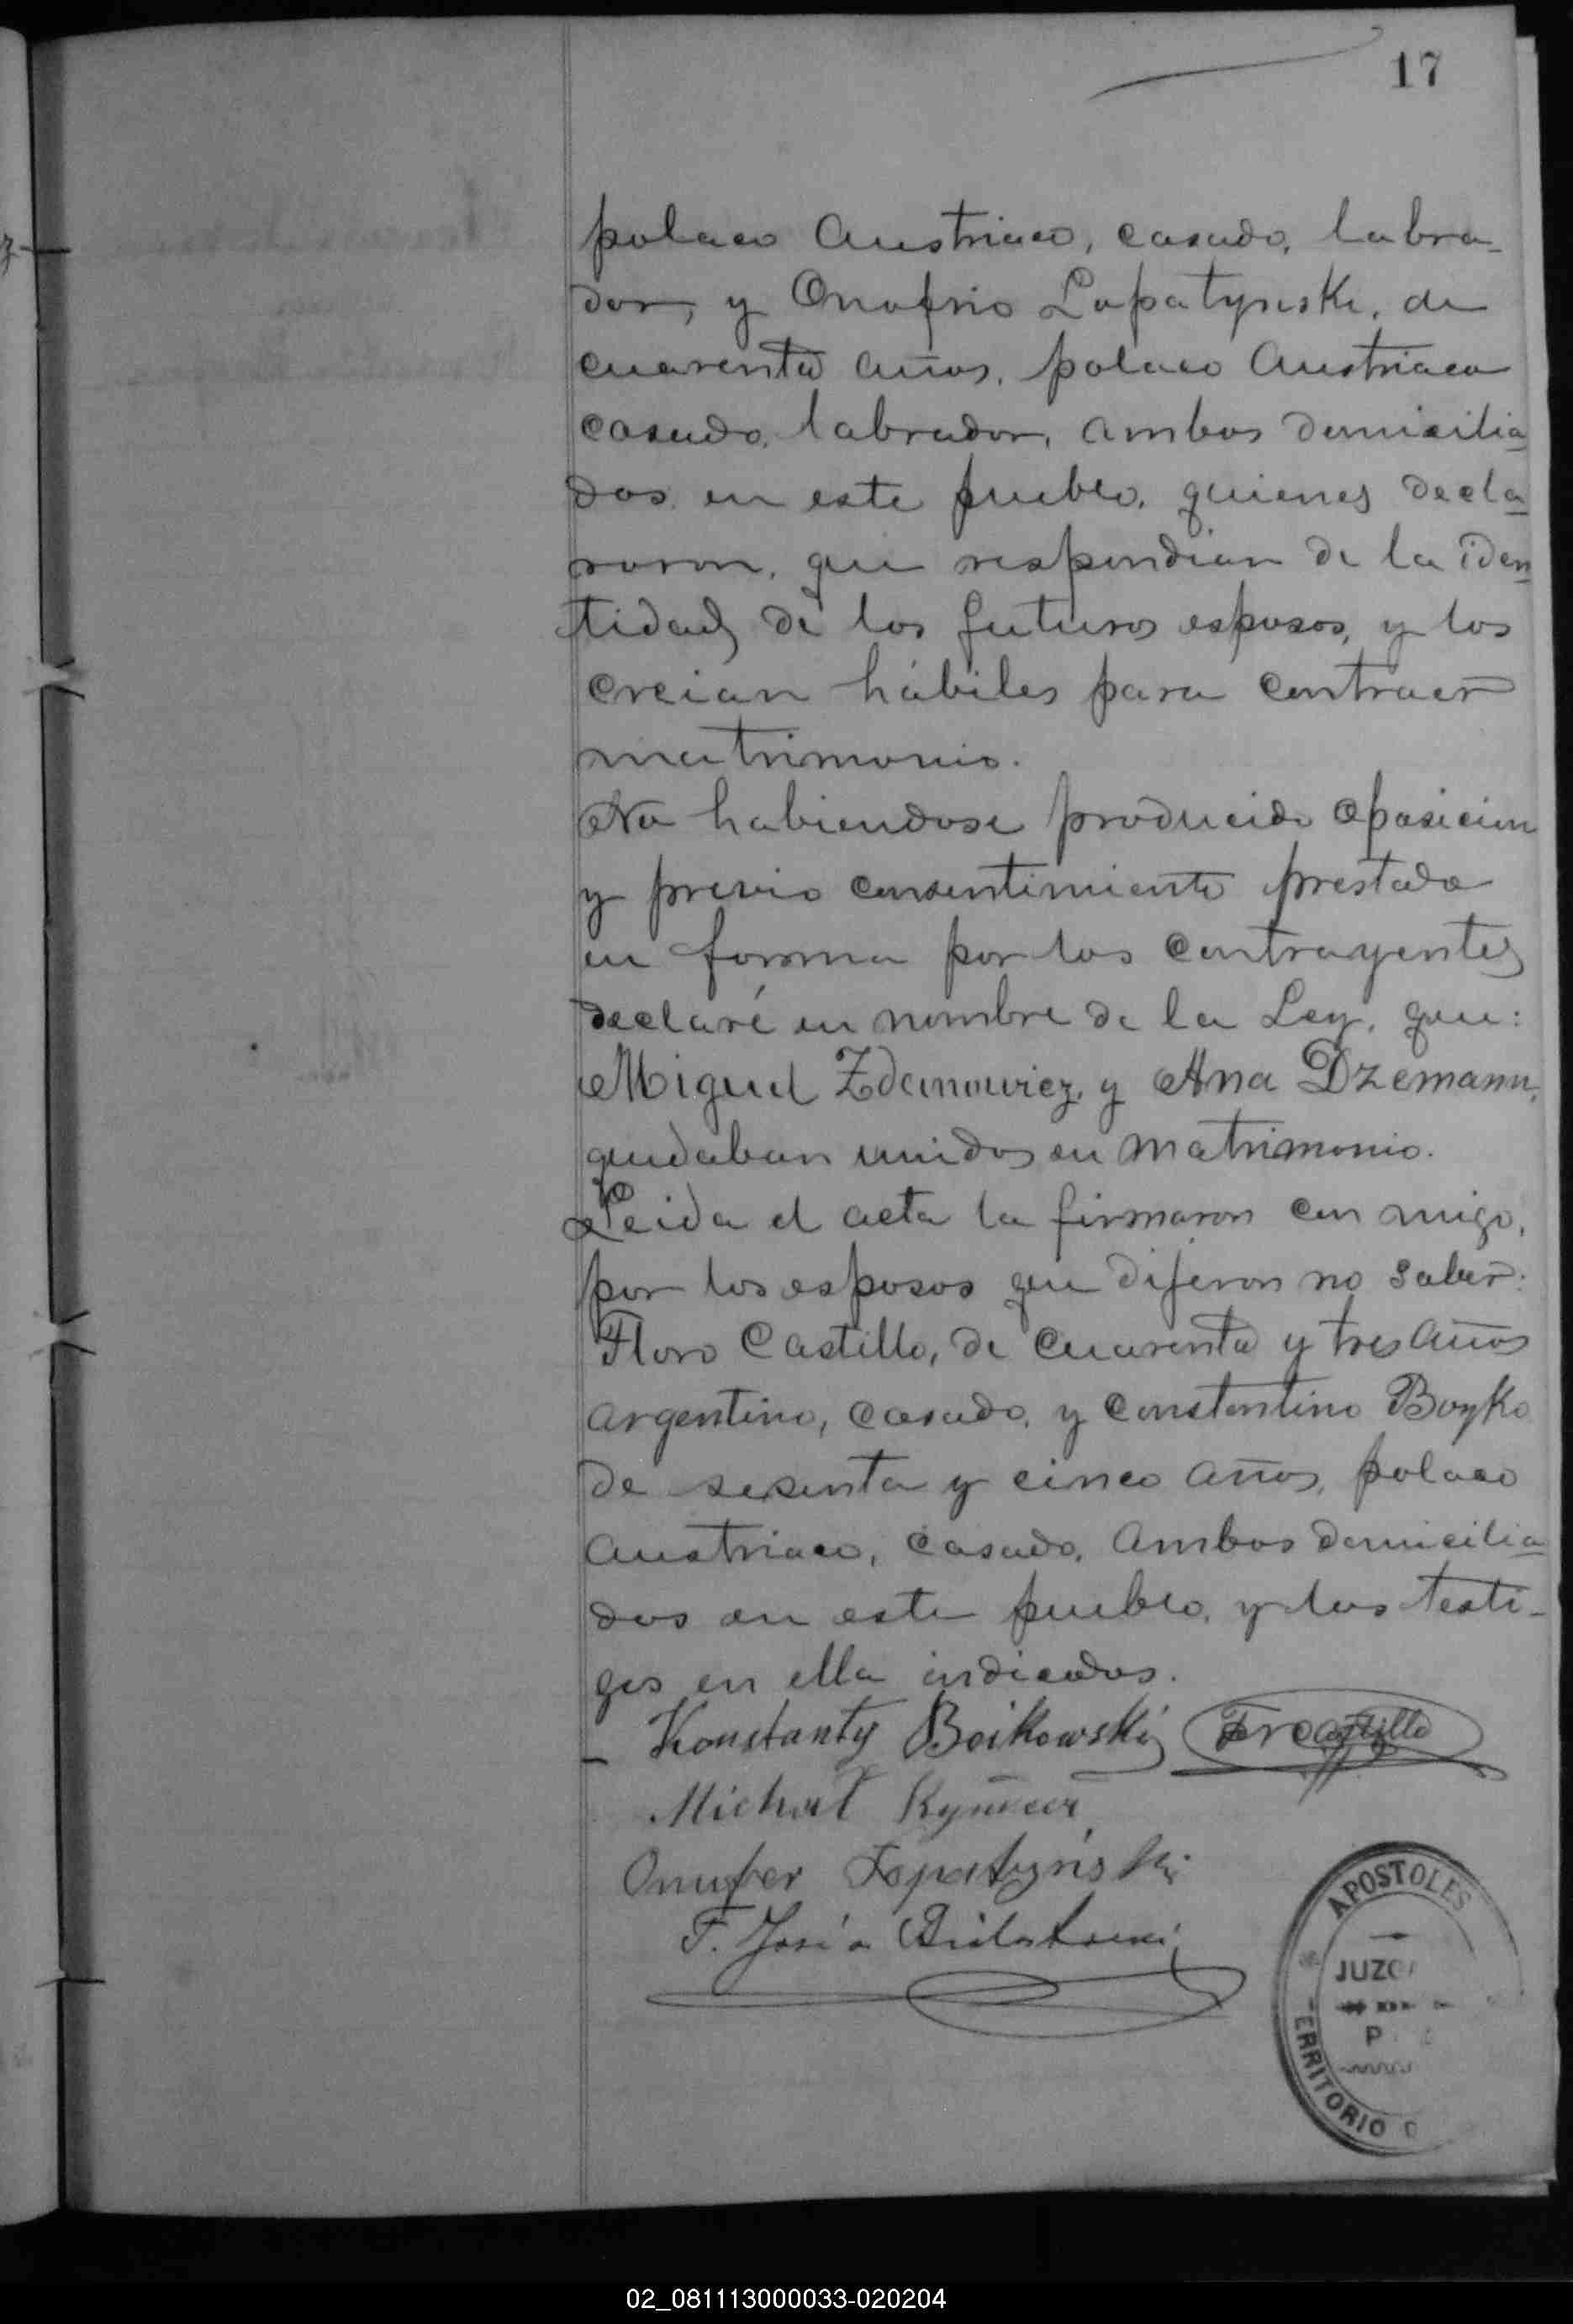 17
polaco Austriaco, casado, labra-
dor, y Onofrio Lopatynski, de
cuarenta años, polaco Austriaco
casado, labrador, ambos domicilia
dos en este pueblo, quienes decla
raron, que respondian de la iden
tidad de los futuros esposos, y los
creian hábiles para contraer
matrimonio.
No habiendose producido oposicion
y previo consentimiento prestado
en forma por los contrayentes
declaré en nombre de la Ley, que:
Miguel Zdanowiez, y Ana Dzemann,
quedaban unidos en matrimonio.
Leida el acta la firmaron con migo,
por los esposos que dijeron no saber:
Floro Castillo, de cuarenta y tres años
argentino, casado, y Constantino Boyko
de sesenta y cinco años, polaco
Austriaco, casado, ambos domicilia
dos en este pueblo, y los testi-
gos en ella indicados.
Konstanty Boikowski Flro Castillo
Michał
Onufer Łopatyński
F. José
APOSTOLES
JUZG
P
TERRITORIO D
02_081113000033-020204